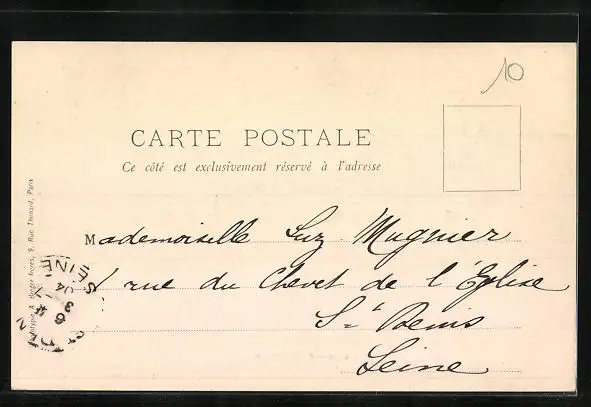 10
CARTE POSTALE
Ce côté est exclusivement réservé à l'adresse
Mademoiselle Suz Magnier
1 rue du Chevet de l'Église
St Denis
Seine
Berger frères, 9, Rue Thénard, Paris
SEINE